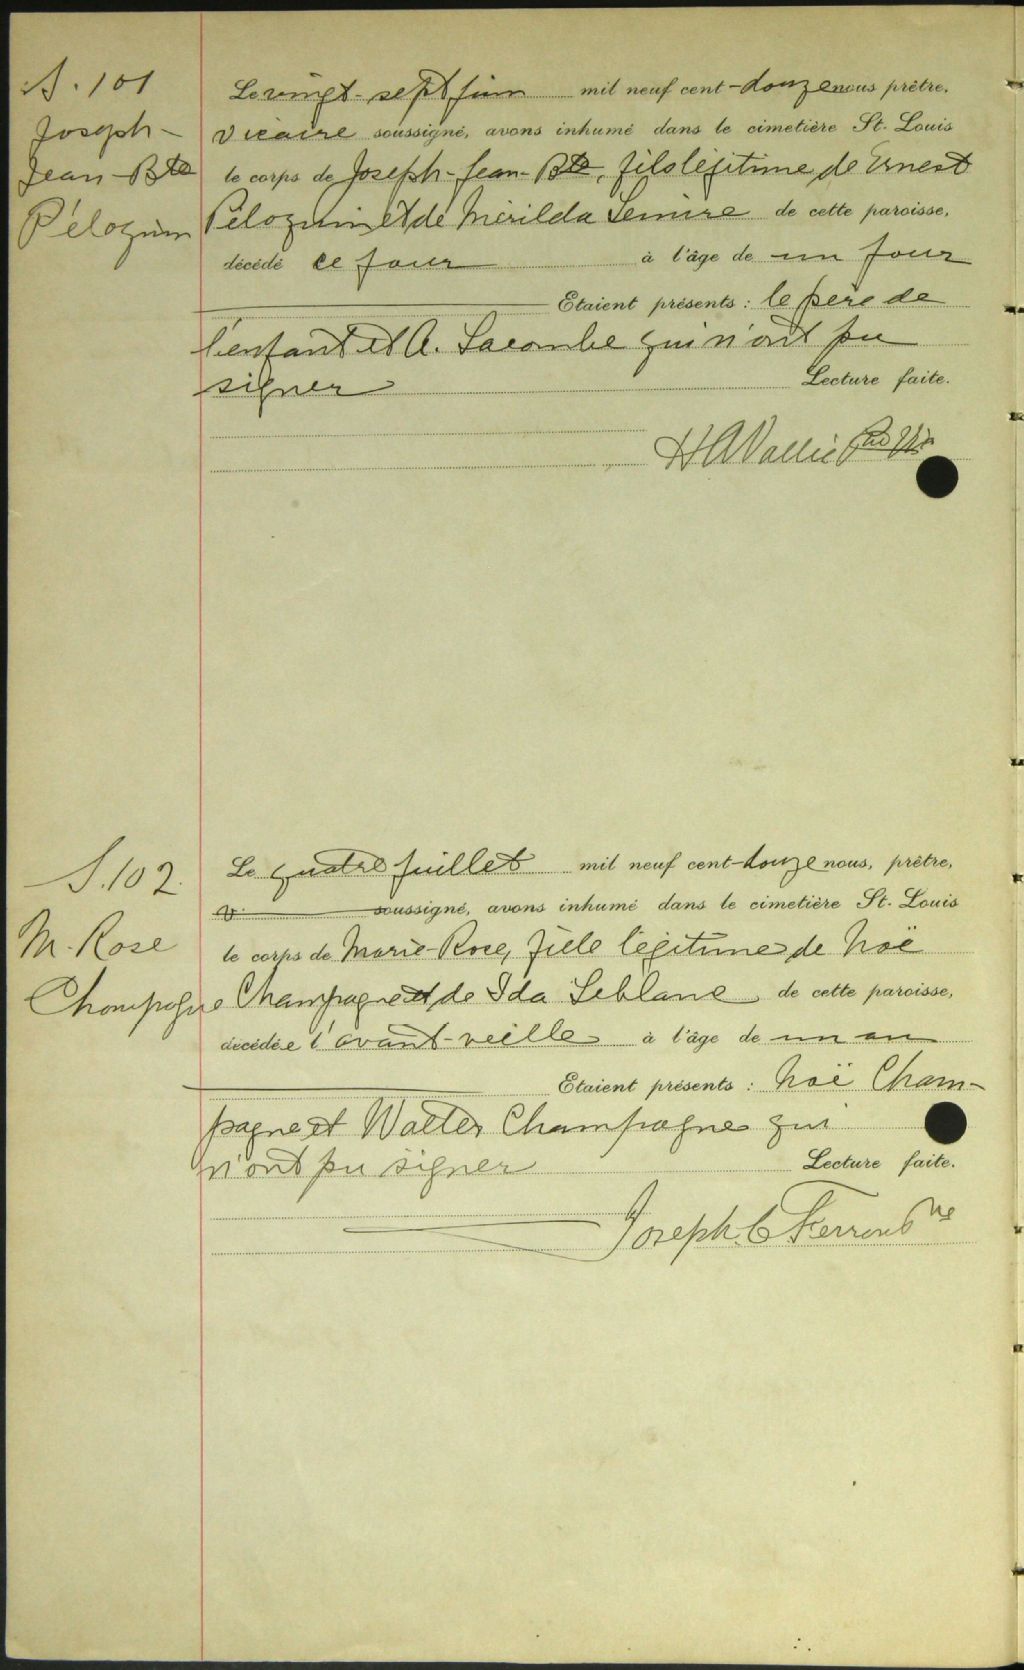 S. 101
Joseph-
Jean-Bte
Péloquin
Le vingt-sept juin mil neuf cent-douze nous prêtre,
vicaire soussigné, avons inhumé dans le cimetière St. Louis
le corps de Joseph-Jean-Bte, fils légitime de Ernest
Péloquin et de Mérilda Lemire de cette paroisse,
décédé ce jour à l'âge de un jour
Etaient présents : le père de
l'enfant et A. Lacombe qui n'ont pu
signer Lecture faite.
H A Vallée Ptre Vic
S. 102.
M. Rose
Champagne
Le quatre juillet mil neuf cent-douze nous, prêtre,
v. soussigné, avons inhumé dans le cimetière St. Louis
le corps de Marie-Rose, fille légitime de Noë
Champagne et de Ida Leblanc de cette paroisse,
décédée l'avant-veille à l'âge de un an
Etaient présents : Noë Cham-
pagne et Walter Champagne qui
n'ont pu signer Lecture faite.
Joseph C Ferron